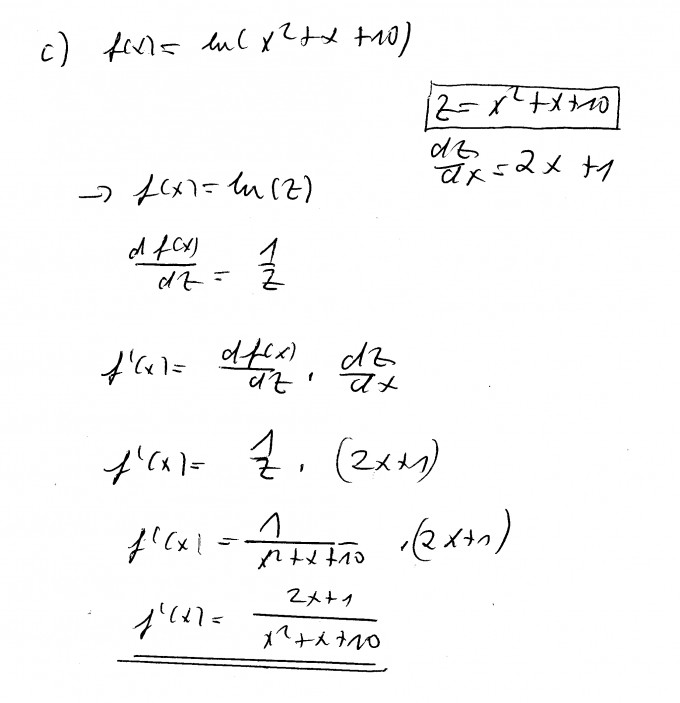 c) f(x) = ln(x²+x+10)
z = x²+x+10
dz/dx = 2x+1
→ f(x) = ln(z)
d f(x)/dz = 1/z
f'(x) = df(x)/dz · dz/dx
f'(x) = 1/z · (2x+1)
f'(x) = 1/(x²+x+10) · (2x+1)
f'(x) = (2x+1)/(x²+x+10)